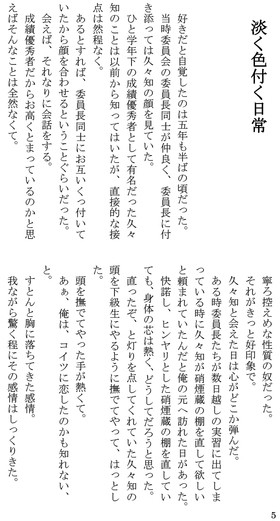 淡く色付く日常
好きだと自覚したのは五年も半ばの頃だった。
当時委員会の委員長同士が仲良く、委員長に付
き添っては久々知の顔を見ていた。
ひと学年下の成績優秀者として有名だった久々
知のことは以前から知ってはいたが、直接的な接
点は然程なく。
あるとすれば、委員長同士にお互いくっ付いて
いたから顔を合わせるということぐらいだった。
会えば、それなりに会話をする。
成績優秀者だからお高くとまっているのかと思
えばそんなことは全然なくて。
寧ろ控えめな性質の奴だった。
それがきっと好印象で。
久々知と会えた日は心がどこか弾んだ。
ある時委員長たちが数日越しの実習に出てしま
っている時に久々知が硝煙蔵の棚を直して欲しい
と頼まれていたんだと俺の元へ訪れた日があった。
快諾し、ヒンヤリとした硝煙蔵の棚を直してい
ても、身体の芯は熱く、どうしてだろうと思った。
直ったぞ、と灯りを点してくれていた久々知の
頭を下級生にやるように撫でてやって、はっとし
た。
頭を撫でてやった手が熱くて。
あぁ、俺は、コイツに恋したのかも知れない、
と。
すとんと胸に落ちてきた感情。
我ながら驚く程にその感情はしっくりきた。
5